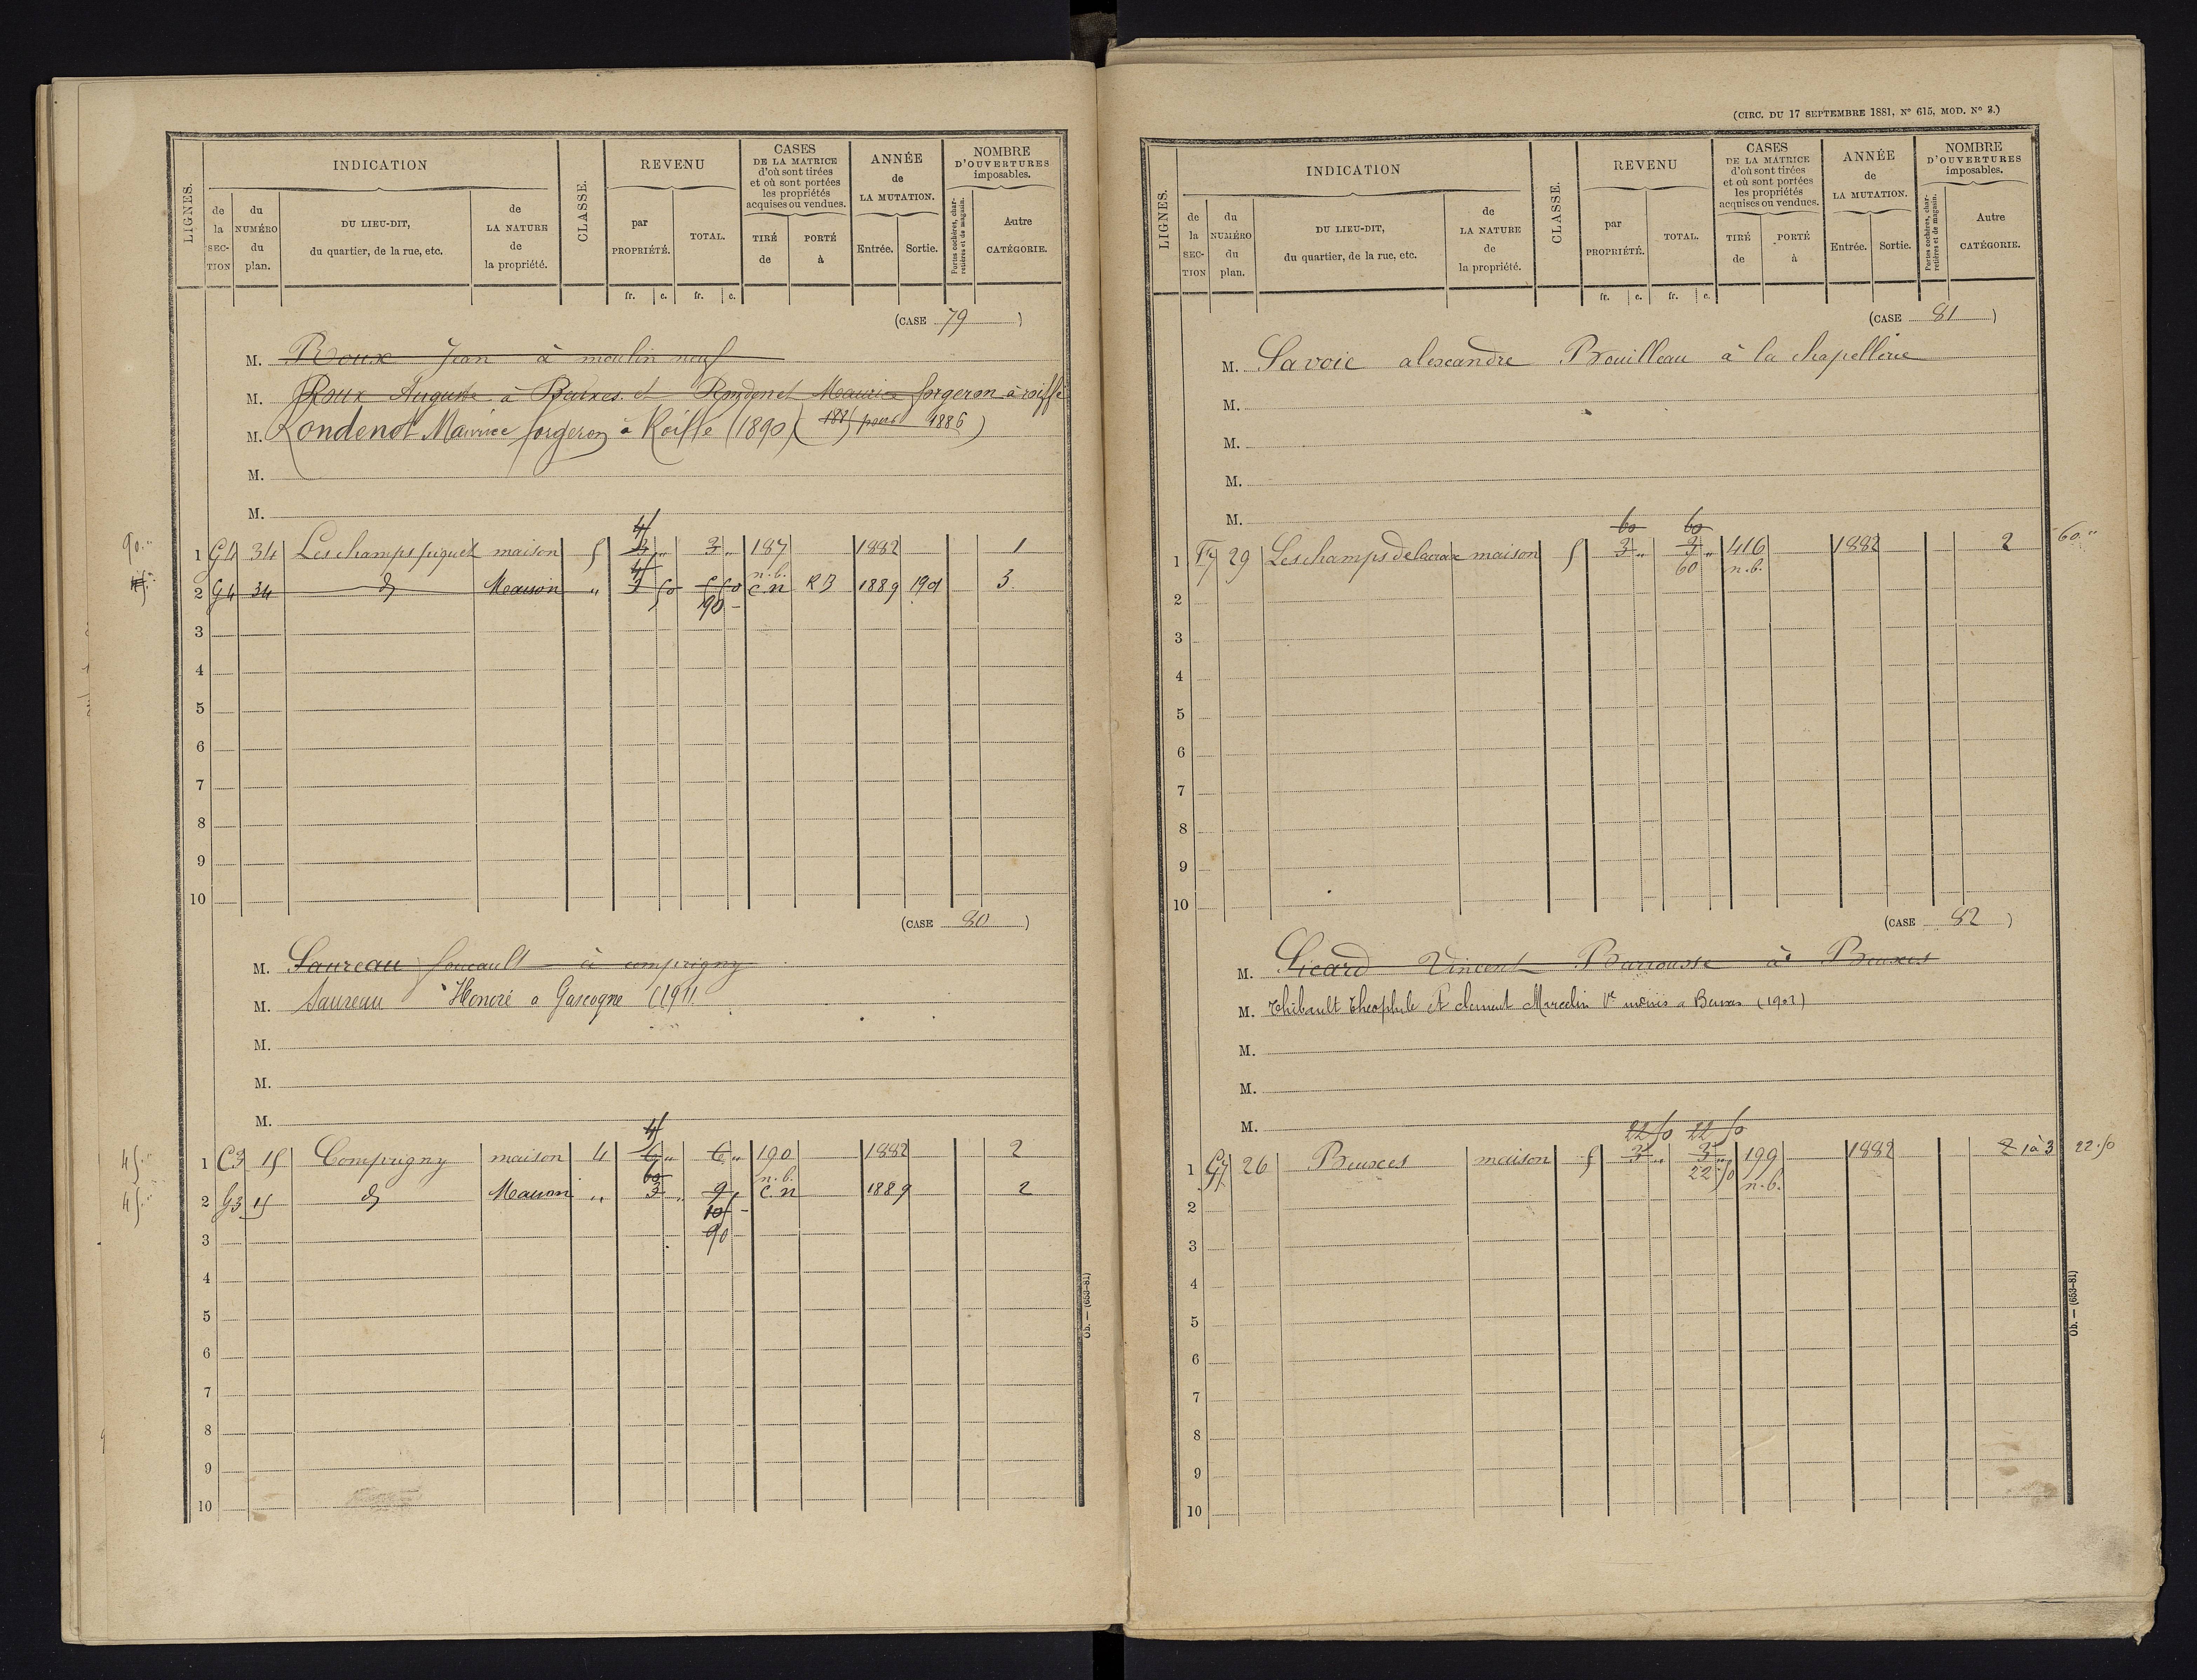 LIGNES.
INDICATION
CLASSE.
REVENU
CASES
DE LA MATRICE
d'où sont tirées
et où sont portées
les propriétés
acquises ou vendues.
ANNÉE
de
LA MUTATION.
NOMBRE
D'OUVERTURES
imposables.
de la SEC-TION
du NUMÉRO du plan.
DU LIEU-DIT,
du quartier, de la rue, etc.
de LA NATURE de la propriété.
par PROPRIÉTÉ.
TOTAL.
TIRÉ de
PORTÉ à
Entrée.
Sortie.
Portes cochères, charretières et de magasin.
Autre CATÉGORIE.
fr. c. fr. c.
(CASE 79)
M. Roux Jean à moulin neuf
M. Roux Auguste à Beuxes et Rondenet Maurice forgeron à roiffé
M. Rondenot Maurice forgeron à Roiffe (1890) (1885 pour 1886)
M.
M.
90 "
1 G4 34 Les champs piquet maison 5 3 " 3 " 187 1882 1
n.b.
2 G4 34 d Maison " 50 c.n RB 1889 1901 3
90 -
3
4
5
6
7
8
9
10
(CASE 80)
M. Saureau foucault à comprigny
M. Saureau Honoré a Gascogne (1911
M.
M.
M.
45 "
1 C3 15 Comprigny maison 4 6 " 6 " 190 1882 2
60 n.b.
45 "
2 G3 15 d Maison " 3 " 9 c.n 1889 2
105 -
90
3
4
5
6
7
8
9
10
Ob. — (653-81)
(CIRC. DU 17 SEPTEMBRE 1881, N° 615, MOD. N° 3.)
LIGNES.
INDICATION
CLASSE.
REVENU
CASES
DE LA MATRICE
d'où sont tirées
et où sont portées
les propriétés
acquises ou vendues.
ANNÉE
de
LA MUTATION.
NOMBRE
D'OUVERTURES
imposables.
de la SEC-TION
du NUMÉRO du plan.
DU LIEU-DIT,
du quartier, de la rue, etc.
de LA NATURE de la propriété.
par PROPRIÉTÉ.
TOTAL.
TIRÉ de
PORTÉ à
Entrée.
Sortie.
Portes cochères, charretières et de magasin.
Autre CATÉGORIE.
fr. c. fr. c.
(CASE 81)
M. Savoie alexandre Brouilleau à la chapellerie
M.
M.
M.
M.
60 60
1 29 Les champs delacroix maison 5 3 " 3 " 416 1882 2 60 "
60 n.b.
2
3
4
5
6
7
8
9
10
(CASE 82)
M. Sicard Vincent Barrousse à Beuxes
M. Thibault Theophile et clement Marcelin Ve a Beuxes (1902)
M.
M.
M.
22 50 22 50
1 G7 26 Beuxes maison 5 3 " 3 " 199 1882 2 1à3 22.50
22 50 n.b.
2
3
4
5
6
7
8
9
10
Ob. — (653-81)